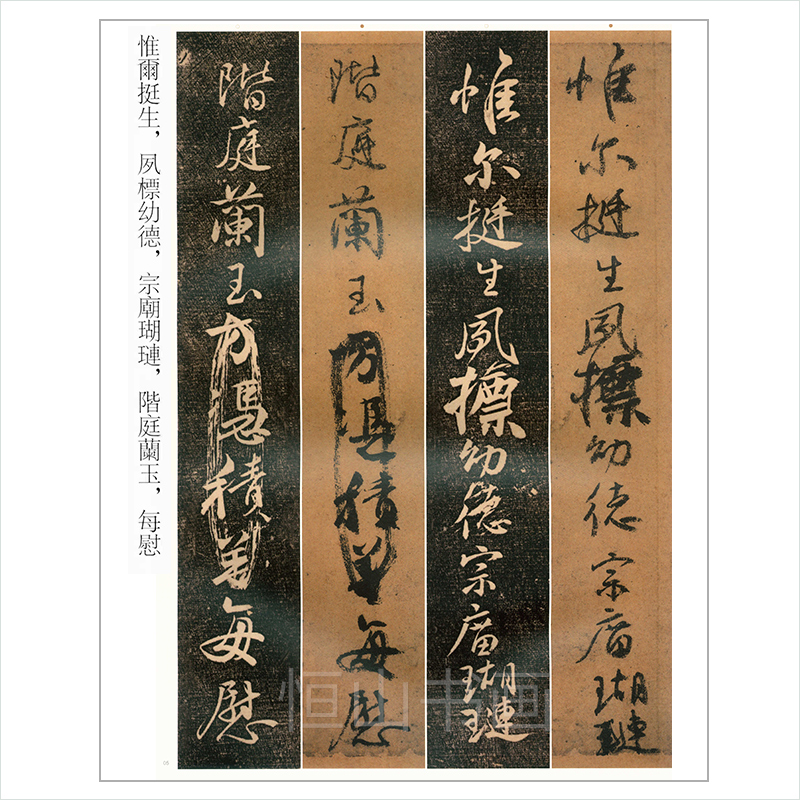 惟尔挺生夙標幼德宗廟瑚璉
惟尔挺生夙標幼德宗廟瑚璉
階庭蘭玉方憑積善每慰
階庭蘭玉方憑積善每慰
惟爾挺生，夙標幼德，宗廟瑚璉，階庭蘭玉，每慰
05
恒山书画